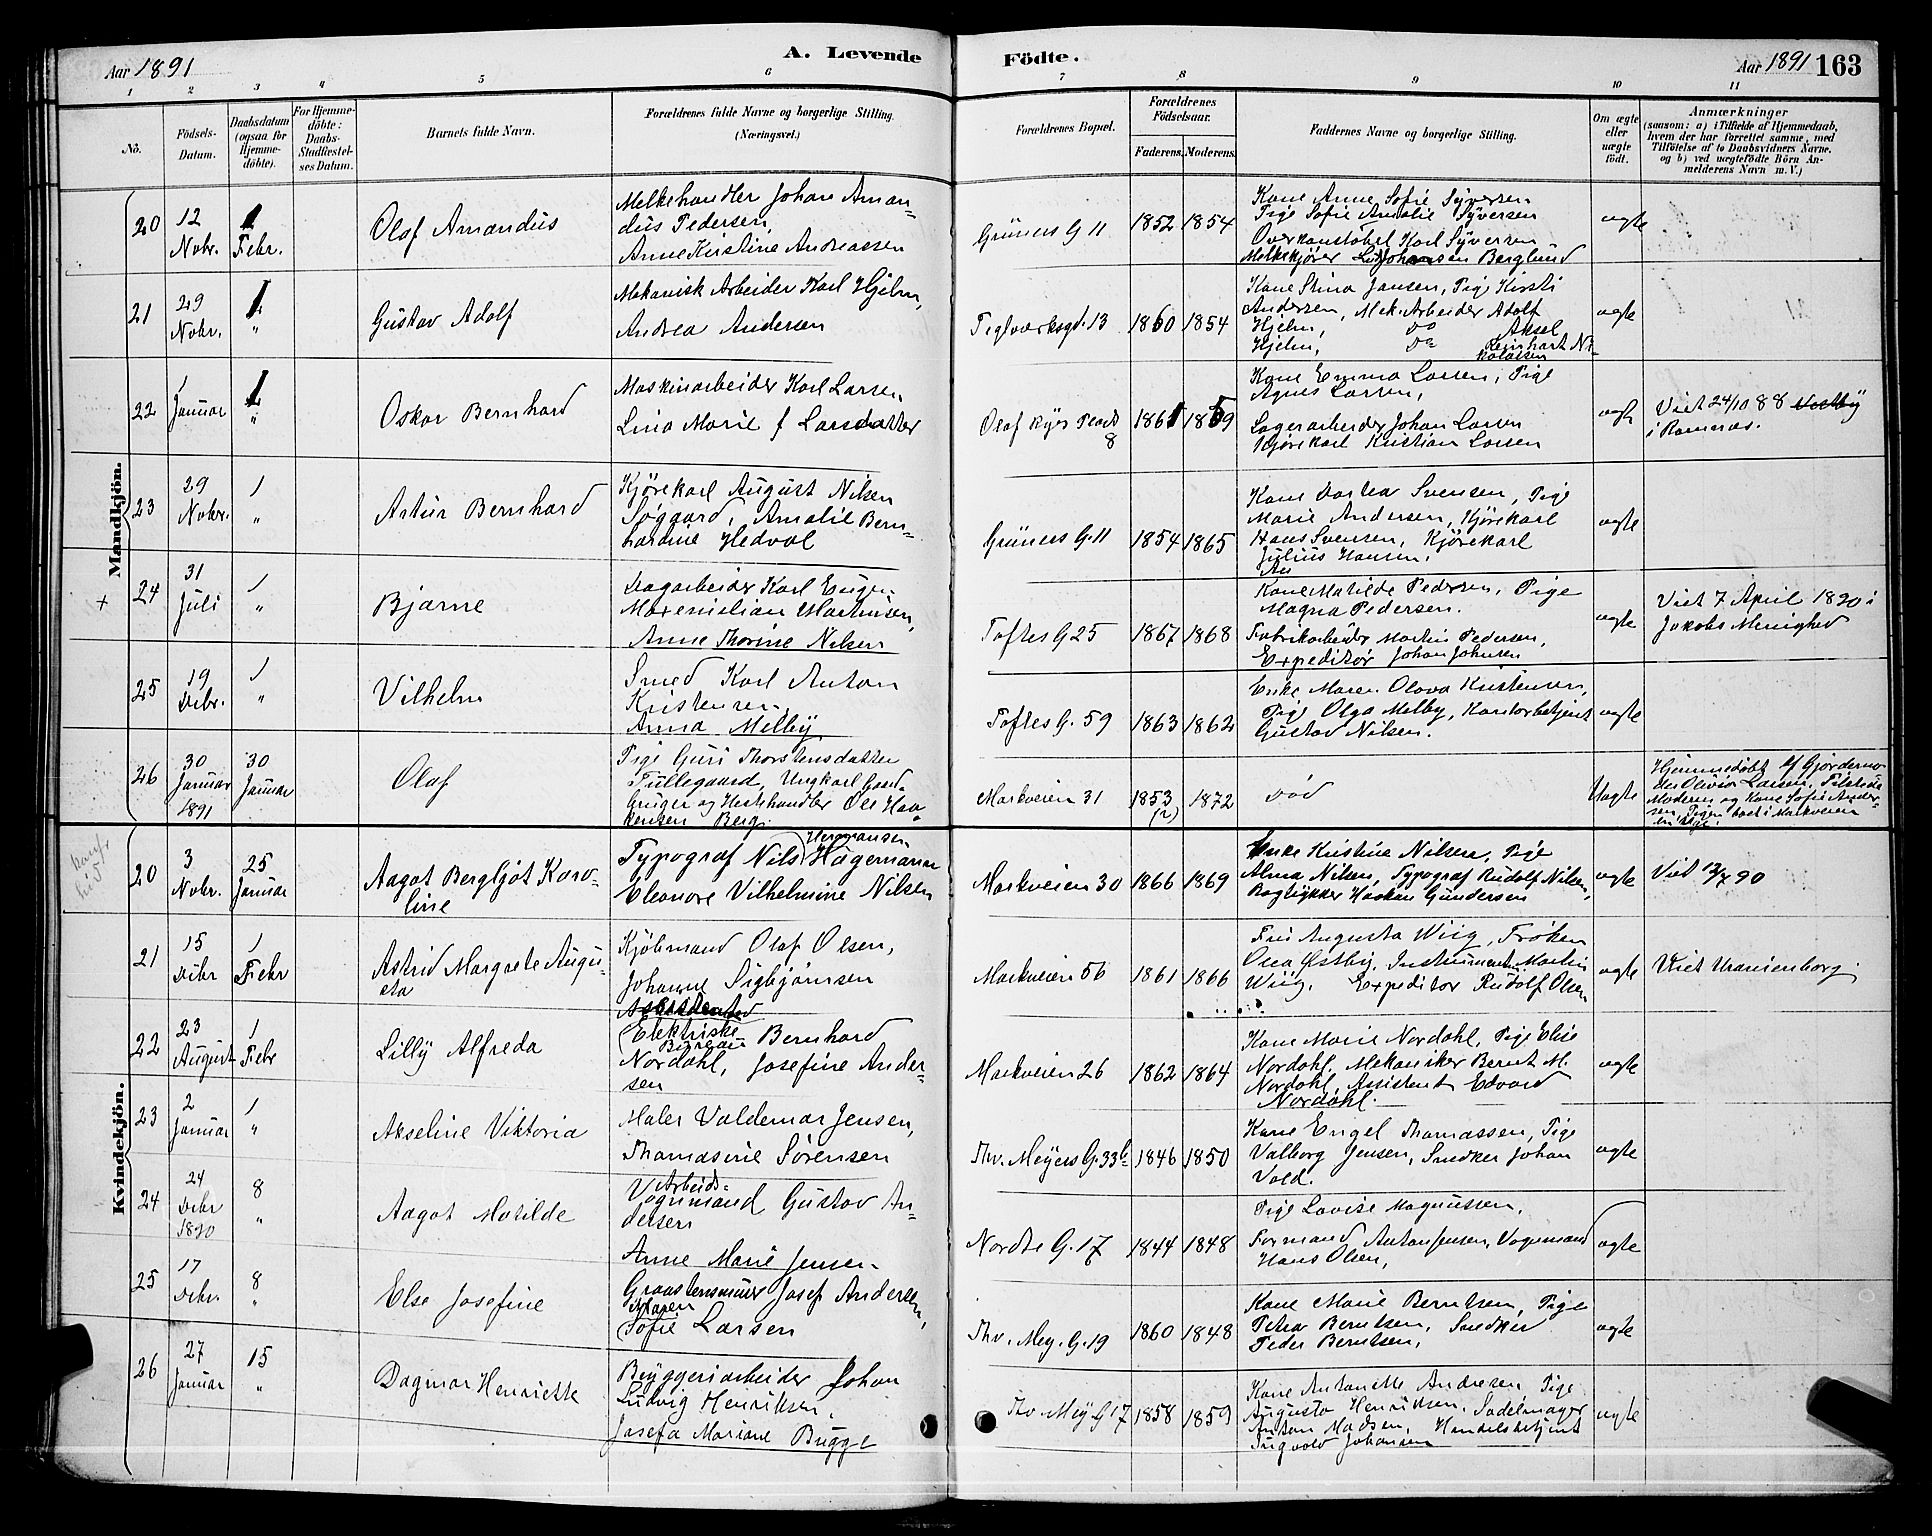 Aar 1891
A. Levende
Födte.
Aar 1891
163
1
2
3
4
5
6
7
8
9
10
11
No.
Födsels-
Datum.
Daabsdatum
(ogsaa for
Hjemme-
döbte).
For Hjemme-
döbte:
Daabs-
Stadfæstel-
ses Datum.
Barnets fulde Navn.
Forældrenes fulde Navne og borgerlige Stilling.
(Næringsvei.)
Forældrenes Bopæl.
Forældrenes
Födselsaar.
Faderens.
Moderens.
Faddernes Navne og borgerlige Stilling.
Om ægte
eller
uægte
født.
Anmærkninger
(saasom: a) i Tilfælde af Hjemmedaab,
hvem der har forrettet samme, med
Tilføielse af to Daabsvidners Navne.
og b) ved uægtefødte Börn An-
melderens Navn m. V.)
Mandkjön.
20
12
Nobr.
1
Febr.
Olaf Amandus
Melkehandler Johan Aman-
dus Pedersen,
Anne Kristine Andreassen
Grüners G 11
1852
1854
Kone Anne Sofie Syversen
Pige Sofie Amalie Syversen
Overkonstabel Karl Syversen
Melkekjører Johansen Berglund
ægte
21
29
Nobr.
1
"
Gustav Adolf
Mekanisk Arbeider Karl Hjelm,
Andrea Andersen
Teglverksgd. 13
1860
1854
Kone Stina Jansen, Pige Kirsti
Andersen, Mek. Arbeider Adolf
Hjelm, Do Aksel
Hjelm, Do Reinhart Ni-
kolaisen
ægte
22
1
Januar
1
"
Oskar Bernhard
Maskinarbeider Karl Larsen
Lina Marie f Larsdatter
Olaf Ryes Plads
8
1861
1859
Kone Emma Larsen, Pige
Agnes Larsen,
Lagerarbeider Johan Larsen
Kjørekarl Kristian Larsen
ægte
Viet 24/10 88
i Romeraas.
23
29
Nobr.
1
"
Artur Bernhard
Kjørekarl August Nilsen
Søgaard, Amalie Bern-
hardine Hedvol
Grüners G. 11
1854
1865
Kone Dortea Svensen, Pige
Marie Andersen, Kjørekarl
Hans Svensen, Kjørekarl
Julius Hansen.
ægte
+
24
31
Juli
1
"
Bjarne
Dagarbeider Karl Eugen
Maxemilian Martinsen,
Anne Thorine Nilsen
Toftes G 25
1867
1868
Kone Matilde Pedersen, Pige
Magna Pedersen.
Fabrikarbeider Martin Pedersen,
Expeditør Johan Johnsen
ægte
Viet 7 April 1890 i
Jakobs Menighed
25
19
Debr.
1
"
Vilhelm
Smed Karl Anton
Kristensen
Anna Melby
Toftes G. 59
1863
1862
Enke Maren Olava Kristensen,
Pige Olga Melby, Kontorbetjent
Gustav Nilsen.
ægte
26
30
Januar
1891
30
Januar
Olaf
Pige Guri Thorstensdatter
Tullegaard, Ungkarl Gaard-
bruger og Hestehandler Ole Haa-
kensen Berg.
Markveien 31
1853
(?)
1872
død
Uægte
Hjemmedøbt af Gjordemo-
der Olivia Larsen. Tilstede
Moderen og Kone Sofie Ander-
sen, Pigen boet i Markveien
Kvindekjön.
20
3
Nobr.
25
Januar
Aagot Bergljot Karo-
line
Hermansen
Typograf Nils Hagemann
Eleonore Vilhelmine Nilsen
Markveien 30
1866
1869
Enke Kristine Nilsen, Pige
Alma Nilsen, Typograf Rudolf Nilsen,
Bogtrykker Haakon Gundersen
ægte
Viet 13/7 90
21
15
Debr
1
Febr
Astrid Margrete Augu-
sta
Kjøbmand Olaf Olsen,
Johanne Sigbjørnsen
Markveien 56
1861
1866
Fru Augusta Wiig, Frøken
Olga Østby, Instrumentm. Martin
Wiig. Expeditør Rudolf Olsen
ægte
Viet Uranienborg
22
23
August
1
Febr
Lilly Alfreda
Assistent ved
Elektriske
Bureau Bernhard
Nordahl, Josefine Ander-
sen
Markveien 26
1862
1864
Kone Marie Nordahl, Pige Elise
Nordahl. Mekaniker Bernt M.
Nordahl, Assistent Edvard
Nordahl.
ægte
23
2
Januar
1
"
Akseline Viktoria
Maler Valdemar Jensen,
Thomasine Sørensen
Thv. Meyers G. 33b
1846
1850
Kone Engel Thomassen, Pige
Valborg Jensen, Snedker Johan
Vold.
ægte
24
24
Debr
1890
8
"
Aagot Matilde
Arbeids-
Vognmand Gustav An-
dersen
Anne Marie Jensen
Nordre G. 17
1844
1848
Pige Lovise Magnussen,
Formand Anton Jensen, Vognmand
Hans Olsen,
ægte
25
17
Debr.
8
"
Else Josefine
Graastensmurer Josef Andersen,
Maren
Sofie Larsen
Thv. Mey. G. 19
1860
1848
Kone Marie Berntsen, Pige
Petra Berntsen, Snedker
Peder Berntsen,
ægte
26
27
Januar
15
"
Dagmar Henriette
Bryggeriarbeider Johan
Ludvig Henriksen,
Josefa Mariane Bugge
Thv. Mey G 17
1858
1859
Kone Antonette Andresen, Pige
Augusta Henriksen. Sadelmager
Anton Madsen, Handelsbetjent
Ingvald Johansen
ægte